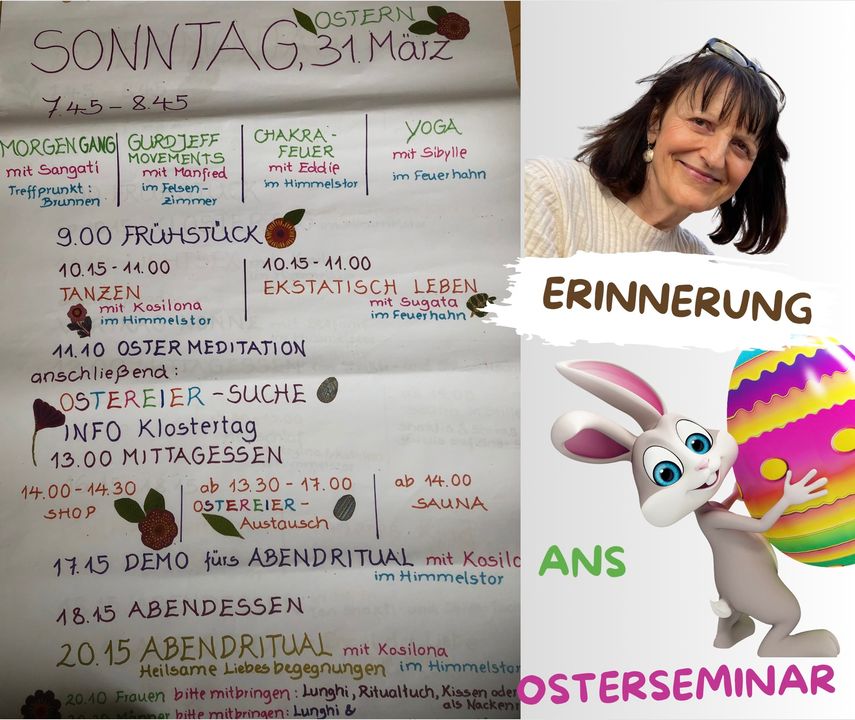 OSTERN
SONNTAG, 31. März
7.45 – 8.45
MORGENGANG
mit Sangati
Treffprunkt:
Brunnen
GURDJEFF
MOVEMENTS
mit Manfred
im Felsen-
zimmer
CHAKRA-
FEUER
mit Eddie
im Himmelstor
YOGA
mit Sibylle
im Feuerhahn
9.00 FRÜHSTÜCK
10.15 - 11.00
TANZEN
mit Kosilona
im Himmelstor
10.15 - 11.00
EKSTATISCH LEBEN
mit Sugata
im Feuerhahn
11.10 OSTERMEDITATION
anschließend:
OSTEREIER - SUCHE
INFO Klostertag
13.00 MITTAGESSEN
14.00 - 14.30
SHOP
ab 13.30 - 17.00
OSTEREIER-
Austausch
ab 14.00
SAUNA
17.15 DEMO fürs ABENDRITUAL mit Kosilo
im Himmelstor
18.15 ABENDESSEN
20.15 ABENDRITUAL mit Kosilona
Heilsame Liebesbegegnungen im Himmelstor
20.10 Frauen bitte mitbringen: Lunghi, Ritualtuch, Kissen oder
als Nacken
Männer bitte mitbringen: Lunghi &
ERINNERUNG
ANS
OSTERSEMINAR